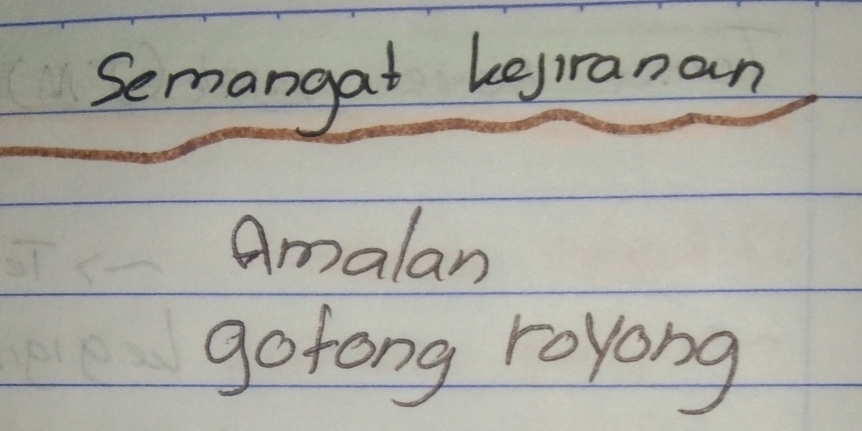 Semangat kejiranan
Amalan
gotong royong